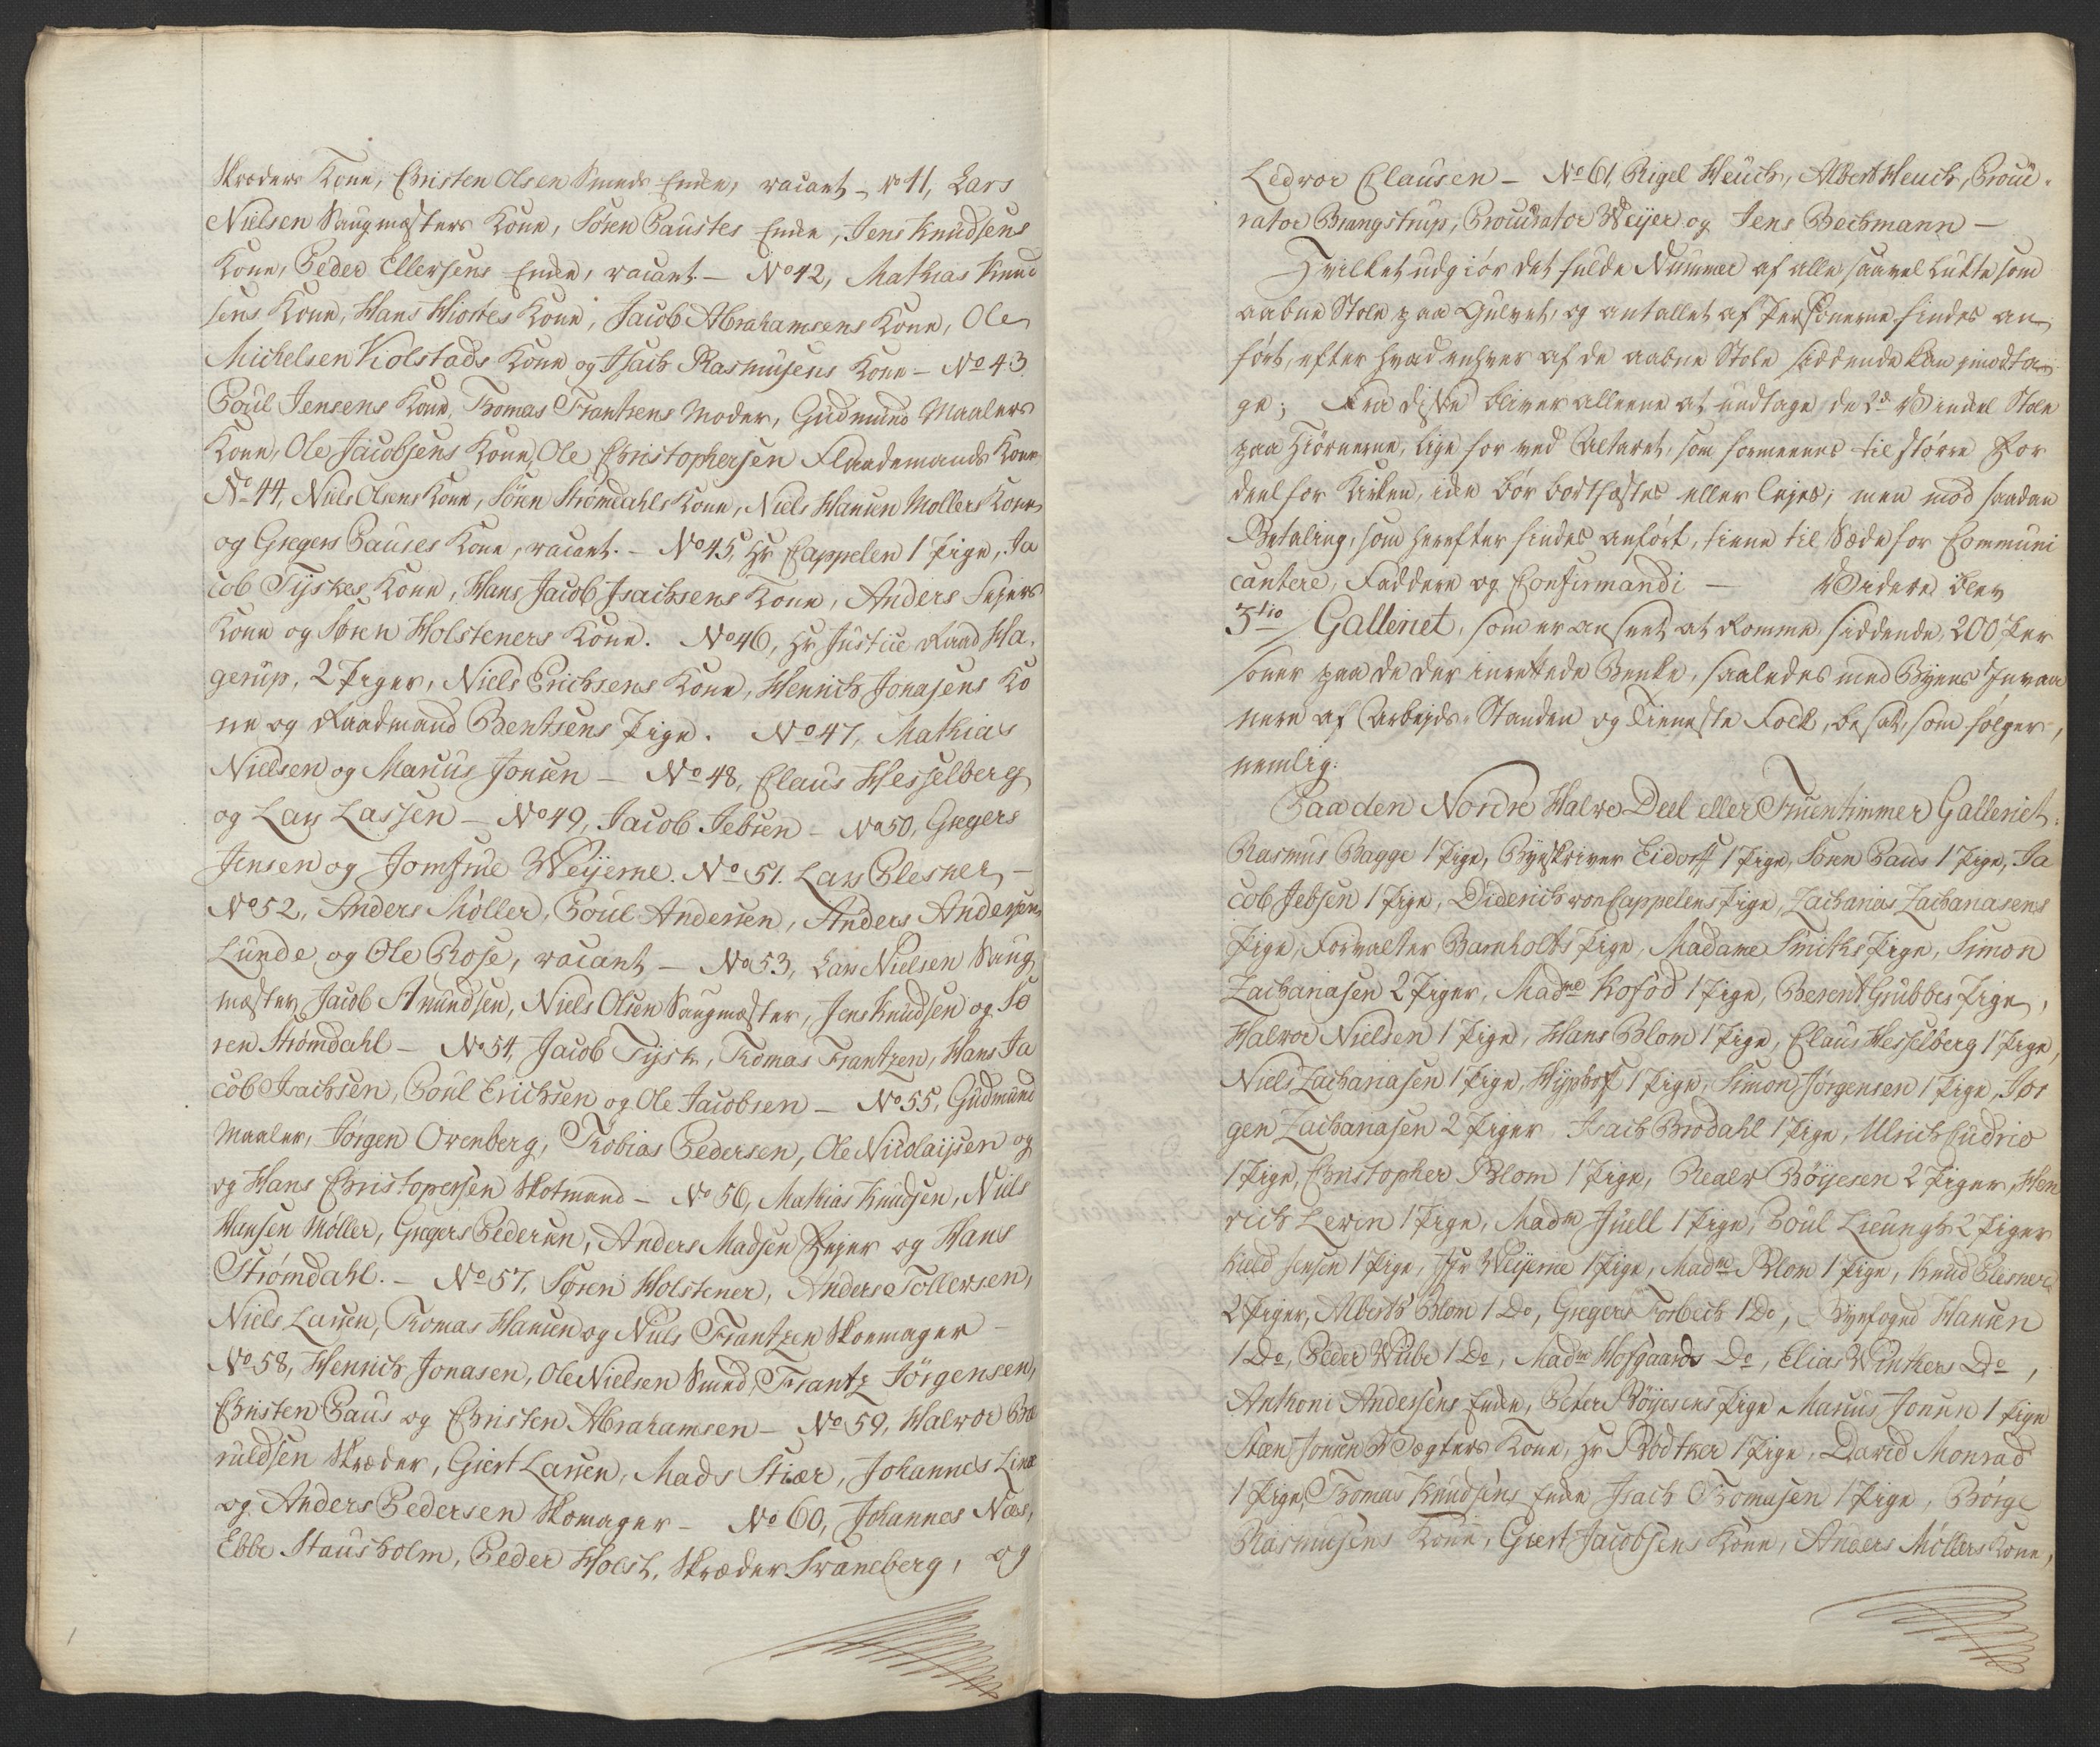 Skræders Kone, Christen Olsen Smeds Enke, vacant – No 41, Lars
Nielsen Saugmæsters Kone, Søren Paustes Enke, Jens Knudsens
Kone, Peder Ellersens Enke, vacant – No 42, Mathias Knud
sens Kone, Hans Hiortes Kone, Jacob Abrahamsens Kone, Ole
Michelsen Kiolstads Kone og Isach Rasmusens Kone – No 43.
Poul Jensens Kone, Thomas Frantzens Moder, Gudmund Maalers
Kone, Ole Jacobsens Kone, Ole Christophersen Flaademands Kone
No 44, Niels Olsens Kone, Sören Strömdahls Kone, Niels Hansen Mollers Kone
og Gregers Pauses Kone, vacant. – No 45, Hr Cappelen 1 Pige, Ja
cob Tyskes Kone, Hans Jacob Isachsens Kone, Anders Fejers
Kone og Søren Holsteners Kone. No 46, Hr Justice Raad Ha,
gerup, 2 Piger, Niels Erichsens Kone, Henrich Jonasens Ko
ne og Raadmand Bentsens Pige. No 47, Mathias
Nielsen og Marcus Jonsen – No 48, Claus Hesselberg
og Lars Lassen – No 49, Jacob Jebsen – No 50, Gregers
Jensen og Jomfrue Weyerne. No 51. Lars Plesner –
No 52, Anders Møller, Poul Andersen, Anders Andersen
Lunde og Ole Rose, vacant – No 53, Lars Nielsen Saug
mæster, Jacob Amundsen, Niels Olsen Saugmæster, Jens Knudsen og Sø
ren Strømdahl – No 54, Jacob Tysk, Thomas Frantzen, Hans Ja
cob Isachsen, Poul Erichsen og Ole Jacobsen – No 55, Gudmund
Maaler, Jørgen Ovenberg, Thobias Pedersen, Ole Nicolaysen og
og Hans Christopersen Skotmand – No 56, Mathias Knudsen, Niels
Hansen Møller, Gregers Pedersen, Anders Madsen Fejer og Hans
Strømdahl. – No 57, Søren Holstener, Anders Tollevsen,
Niels Larsen, Thomas Hansen og Niels Frantzen Skoemager –
No 58, Henrich Jonasen, Ole Nielsen Smed, Frantz Jörgensen,
Christen Paus og Christen Abrahamsen – No 59, Halvor
ruldsen Skræder, Giert Larsen, Mads Stiær, Johannes
og Anders Pedersen Skomager – No 60, Johannes Næs,
Ebbe Stausholm, Peder Holst, Skræder Svaneberg, og
Ledvor Clausen – No 61, Rigel Heuch, Albert Heuch, Procu
rator Brangstrup, Procurator Weyer og Jens Bechmann –
Hvilket udgiör det fulde Nummer af alle saavel lukte som
aabne Stole paa Gulvet, og antallet af Personerne findes an
fört, efter hvad enhver af de aabne Stole siddende kan imodta
ge; Fra diske bliver alleene at undtage de 2de Vindel Stole
paa Hiörnerne, lige for ved Altaret, som formeenes til större For
deel for Kirken, icke bör bortfæstes eller lejes; men mod saadan
Betaling, som herefter findes anfört, tiene til Sæde for Communi
cantere, Faddere og Confirmandi – Videre blev
3tio/ Galleriet, som er anseet at komme siddende 200 Per
soner paa de der inrettede Benke, saaledes med Byens Invaa
nere af Arbejds-Standen og Tieneste Folk, besat, som fölger,
nemlig:
Paa den Nordre Halve Deel eller Fruentimmer Galleriet:
Rasmus Bagge 1 Pige, Byeskriver Eidorff 1 Pige, Sören Paus 1 Pige, Ja
cob Jebsen 1 Pige, Diderich von Cappelens Pige, Zacharias Zachariasens
Pige, Forvalter Barnholts Pige, Madame Smiths Pige, Simon
Zachariasen 2 Piger, Madme Kofod 1 Pige, Berent Grubbes Pige,
Halvor Nielsen 1 Pige, Hans Blom 1 Pige, Claus Hesselberg 1 Pige,
Niels Zachariasen 1 Pige, Hyphoff 1 Pige, Simon Jörgensen 1 Pige, Jør
gen Zachariasen 2 Piger, Isach Brodahl 1 Pige, Ulrich Cudrio
1 Pige, Christopher Blom 1 Pige, Realv Böyesen 2 Piger, Hen
rich Levin 1 Pige, Madm Juell 1 Pige, Poul Lieungh 2 Piger
Kield Jensen 1 Pige, Jfr Weyerne 1 Pige, Madme Blom 1 Pige, Knud Plesner
2 Piger, Alberth Blom 1 Do, Gregers Forbech 1 Do, Byefoged Hansen
1 Do, Peder Wibe 1 Do, Madm Hofgaards Do, Elias Winthers Do,
Anthoni Andersens Enke, Peter Böyesens Pige, Marcus Jonsen 1 Pige
Sten Jonsen Vægters Kone, Hr Rödtker 1 Pige, David Monrad
1 Pige, Thomas Knudsens Enke, Isach Thomasen 1 Pige, Börge
Rasmusens Kone, Giert Jacobsens Kone, Anders Möllers Kone,